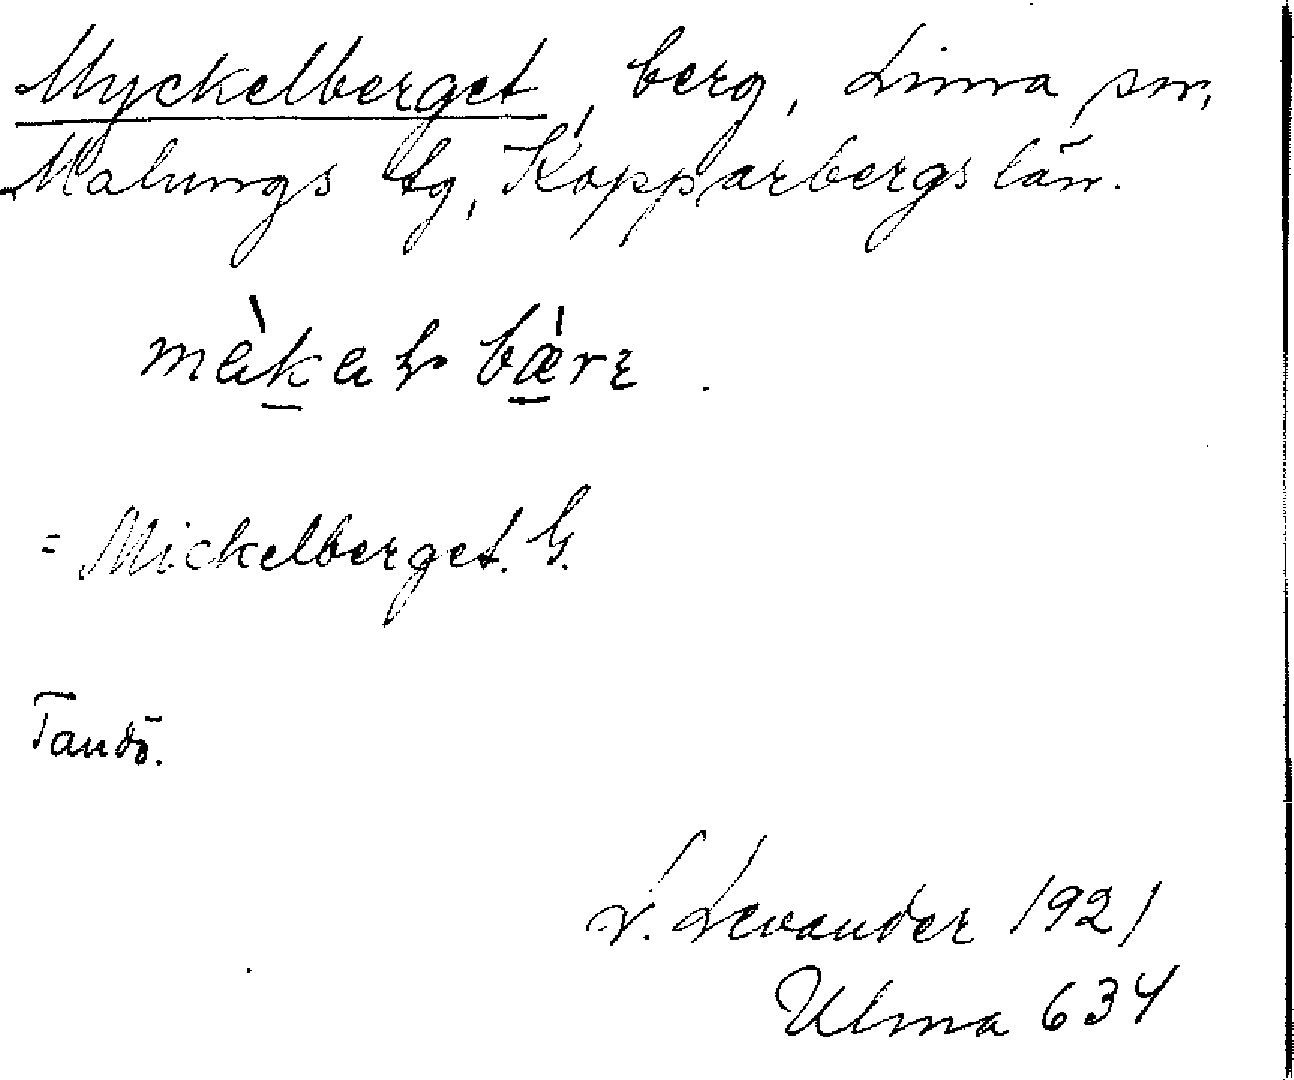 Myckelberget, berg, Lima sn,
Malungs tg, Kopparbergs län.
= Mickelberget. G.
Tandö.
L. Levander 1921
Ulma 634